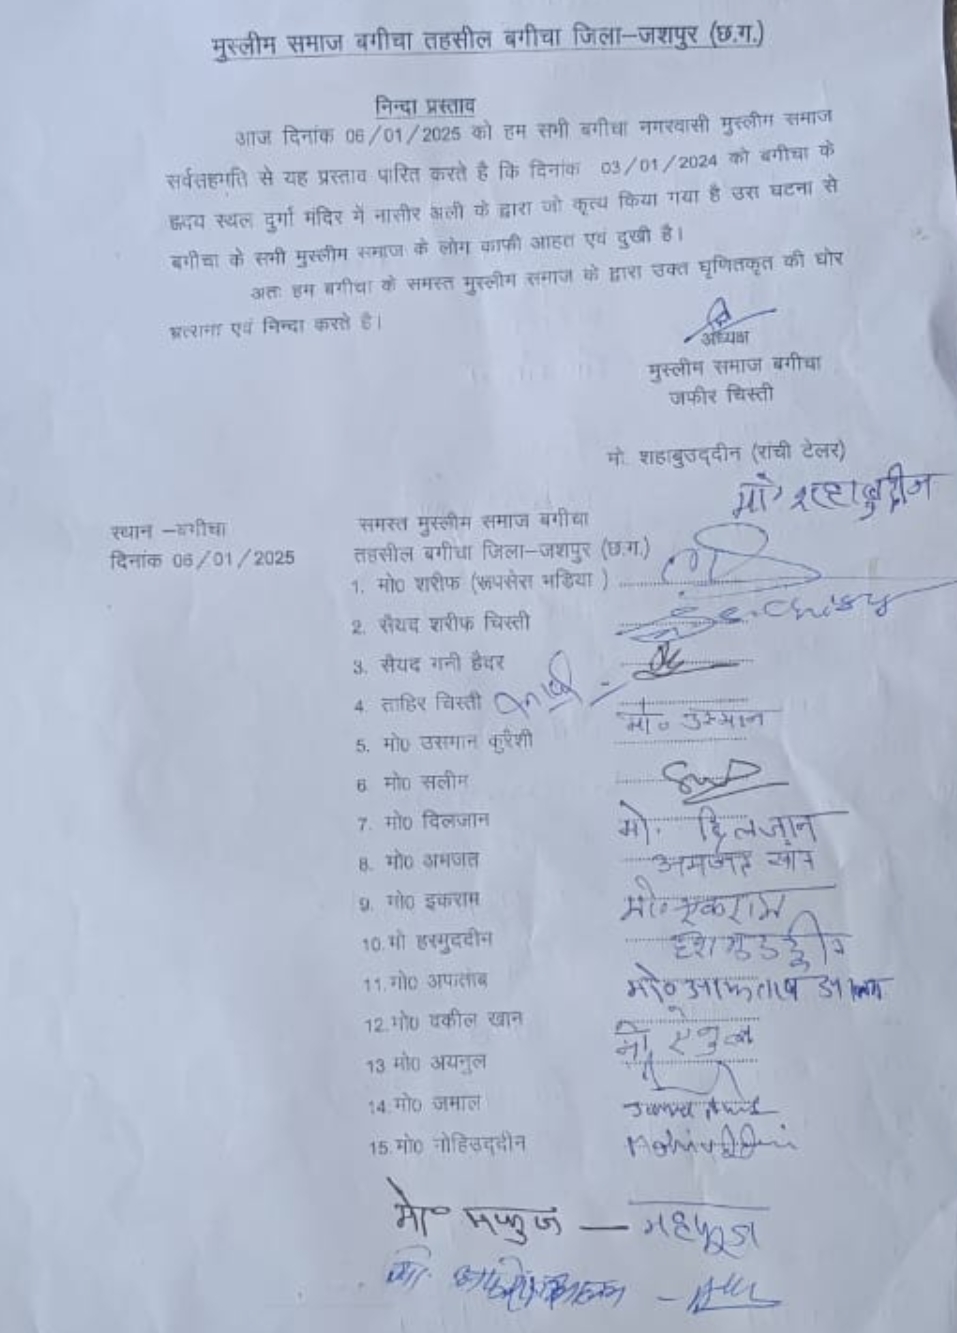 मुस्लीम समाज बगीचा तहसील बगीचा जिला–जशपुर (छ.ग.)
निन्दा प्रस्ताव
आज दिनांक 06/01/2025 को हम सभी बगीचा नगरवासी मुस्लीम समाज
सर्वसहमति से यह प्रस्ताव पारित करते है कि दिनांक 03/01/2024 को बगीचा के
ह्रदय स्थल दुर्गा मंदिर में नासीर अली के द्वारा जो कृत्य किया गया है उस घटना से
बगीचा के सभी मुस्लीम समाज के लोग काफी आहत एवं दुखी है।
अतः हम बगीचा के समस्त मुस्लीम समाज के द्वारा उक्त घृणितकृत की घोर
भ्रत्सना एवं निन्दा करते है।
अध्यक्ष
मुस्लीम समाज बगीचा
जफीर चिस्ती
मो. शहाबुउद्दीन (रांची टेलर)
मो. शहाबुद्दीन
स्थान –बगीचा
दिनांक 06/01/2025
समस्त मुस्लीम समाज बगीचा
तहसील बगीचा जिला–जशपुर (छ.ग.)
1. मो0 शरीफ (रूपसेरा भड़िया )
2. सैयद शरीफ चिस्ती
3. सैयद गनी हैदर
4. ताहिर चिस्ती
5. मो0 उसमान कुरैशी
मो. उस्मान
6. मो0 सलीम
7. मो0 दिलजान
मो. दिलजान
8. मो0 अमजत
अमजद खान
9. मो0 इकराम
मो. एकराम
10. मो हसमुददीन
11. मो0 अफताब
मो० आफताब आलम
12. मो0 वकील खान
13 मो0 अयनुल
मो. एनुल
14. मो0 जमाल
15. मो0 मोहिउददीन
मो० मफुज — महफूज
मो.